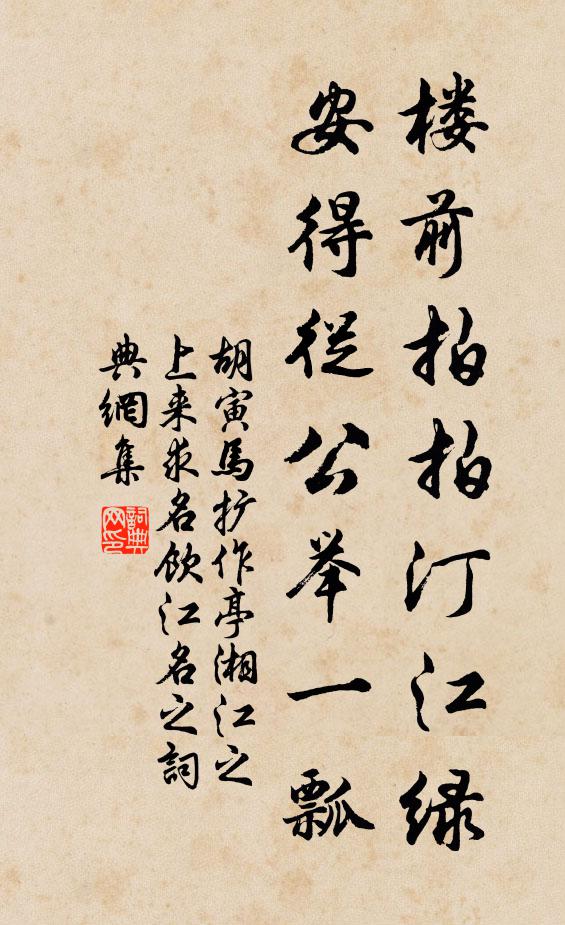 楼前拍拍汀江绿
安得從公举一瓢
胡寅馬扩作亭湘江之
上来求名飲江名之詞
典網集
詞典网印